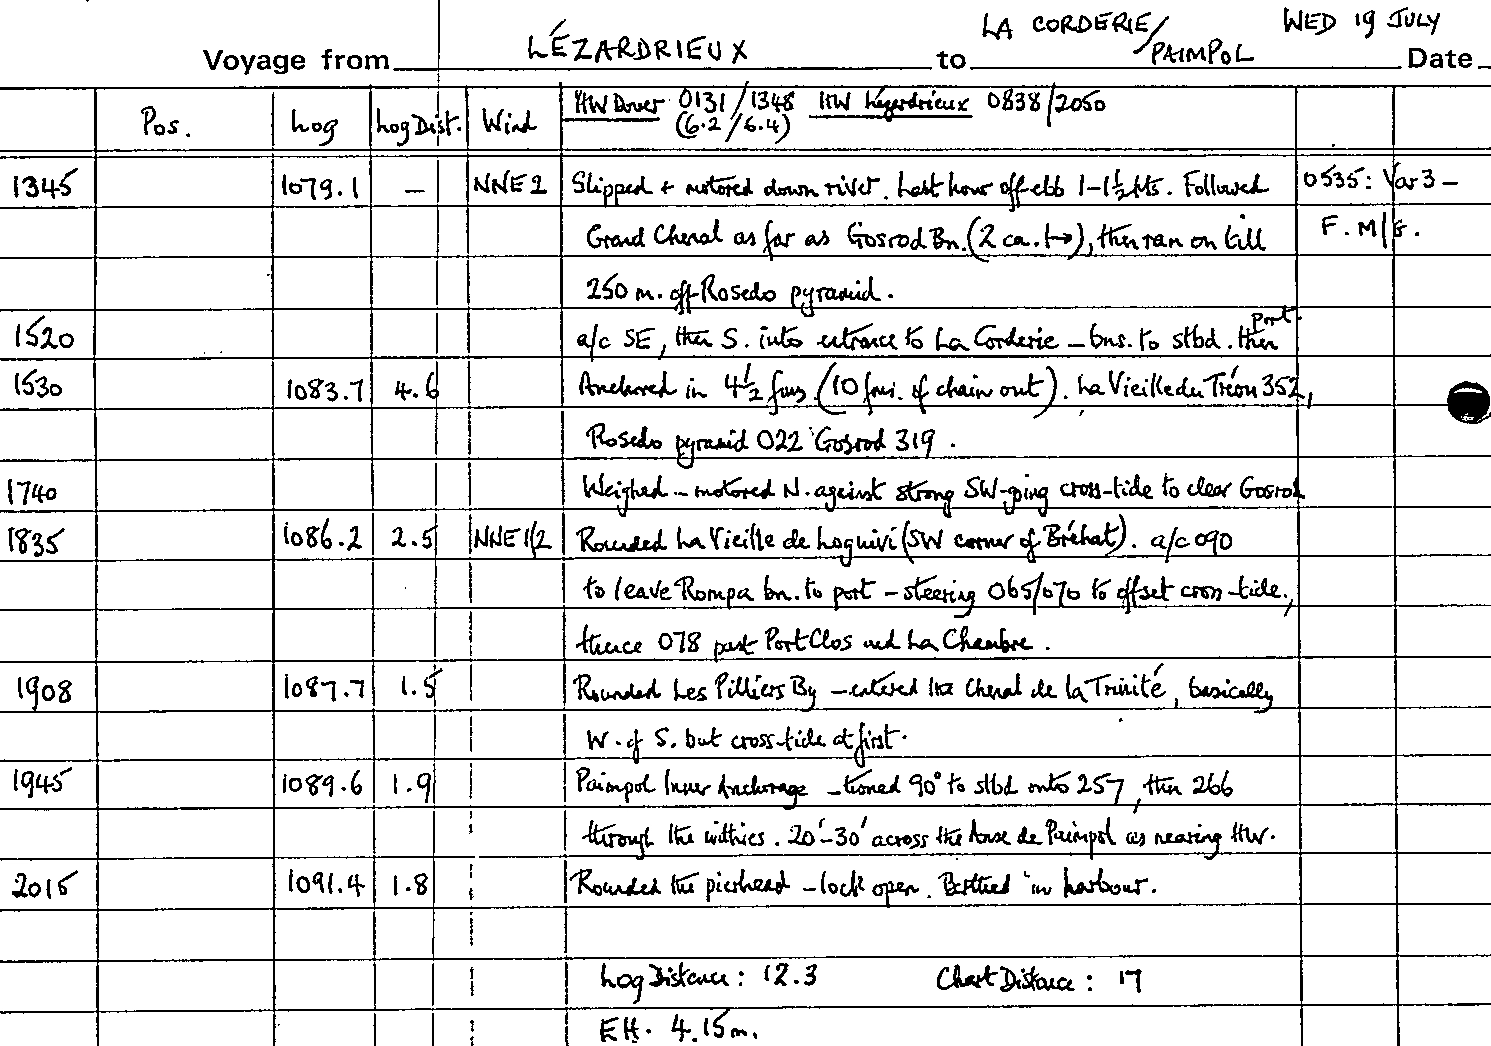 LA CORDERIE/ WED 19 JULY
Voyage from LÉZARDRIEUX to PAIMPOL Date
HW Dover 0131/1348 HW Lézardrieux 0838/2050
Pos. Log Log Dist. Wind (6.2/6.4)
1345 1079.1 — NNE 2 Slipped + motored down river. Last hour of ebb 1-1½ kts. Followed 0535: Var 3 –
Grand Chenal as far as Gosrod Bn. (2 ca. ↦), then ran on till F. M/G.
250 m. off Rosedo pyramid.
1520 a/c SE, then S. into entrance to La Corderie – bns. to stbd. then Port.
1530 1083.7 4.6 Anchored in 4½ fms (10 fms. of chain out). La Vieille du Tréou 352,
Rosedo pyramid 022 Gosrod 319.
1740 Weighed – motored N. against strong SW-going cross-tide to clear Gosrod
1835 1086.2 2.5 NNE 1/2 Rounded La Vieille de Loguivi (SW corner of Bréhat). a/c 090
to leave Rompa bn. to port – steering 065/070 to offset cross-tide,
thence 078 past Port Clos and La Chambre.
1908 1087.7 1.5 Rounded Les Pilliers By – entered the Chenal de la Trinité, basically
W. of S. but cross-tide at first.
1945 1089.6 1.9 Paimpol Inner Anchorage – turned 90° to stbd onto 257, then 266
through the withies. 20'-30' across the Anse de Paimpol as nearing HW.
2015 1091.4 1.8 Rounded the pierhead – lock open. Berthed in harbour.
Log Distance: 12.3 Chart Distance: 17
EH. 4.15m.